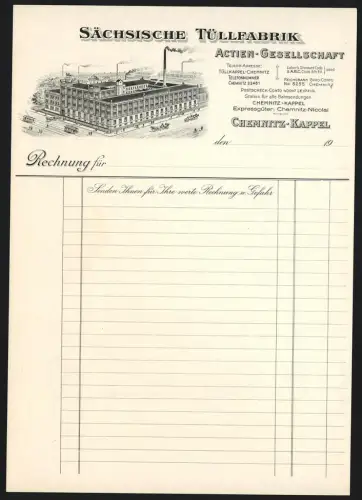 SÄCHSISCHE TÜLLFABRIK
ACTIEN-GESELLSCHAFT
TELEGR. ADRESSE:
TÜLLFABRIK-CHEMNITZ
TELEFONNUMMER
CHEMNITZ
Lieber's Standard Code
A.B.C. Code
REICHSBANK GIRO-CONTO
CHEMNITZ
POSTSCHECK-CONTO LEIPZIG
Station für alle Bahnsendungen
CHEMNITZ-KAPPEL
Expressgüter, Chemnitz-Nicolai
CHEMNITZ-KAPPEL
den 19
Rechnung für
Senden Ihnen für Ihre werte Rechnung u. Gefahr